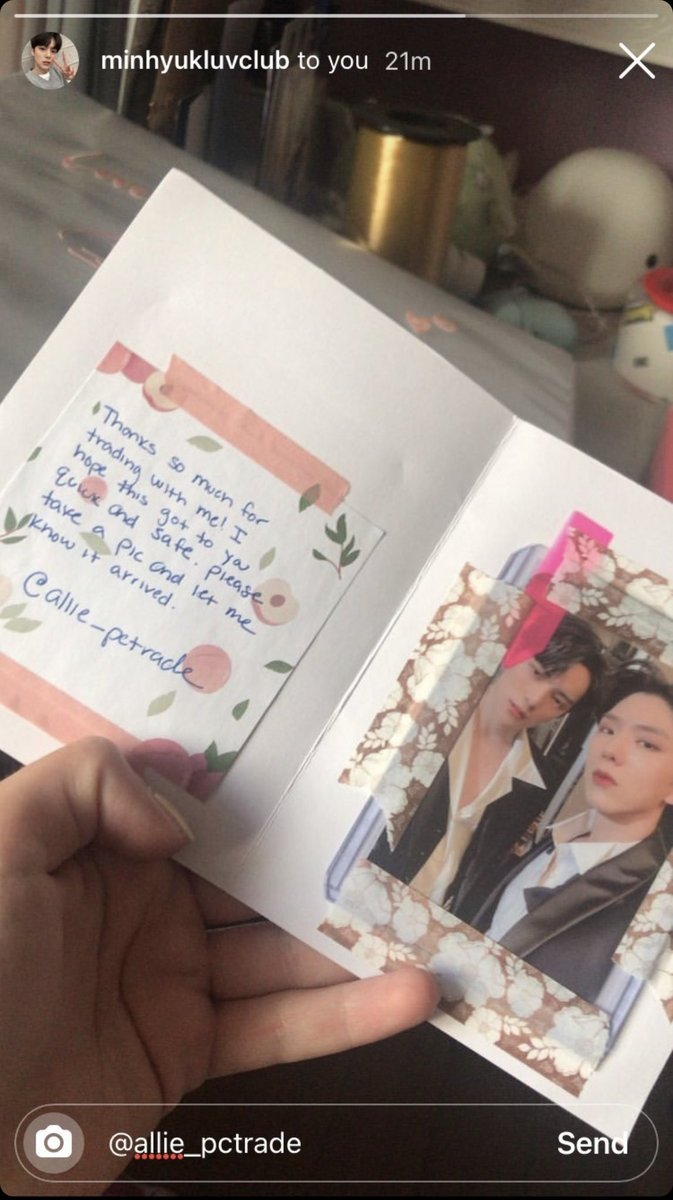 minhyukluvclub to you 21m
Thanks so much for
trading with me! I
hope this got to you
quick and safe. Please
take a pic and let me
know it arrived.
@allie_pctrade
@allie_pctrade
Send